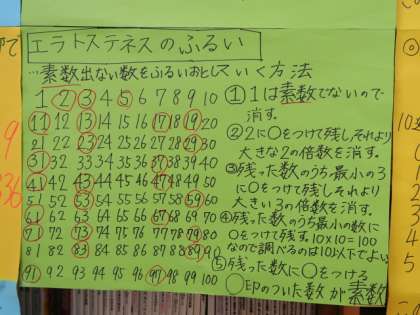 エラトステネスのふるい
…素数出ない数をふるいおとしていく方法
1 2 3 4 5 6 7 8 9 10
11 12 13 14 15 16 17 18 19 20
21 22 23 24 25 26 27 28 29 30
31 32 33 34 35 36 37 38 39 40
41 42 43 44 45 46 47 48 49 50
51 52 53 54 55 56 57 58 59 60
61 62 63 64 65 66 67 68 69 70
71 72 73 74 75 76 77 78 79 80
81 82 83 84 85 86 87 88 89 90
91 92 93 94 95 96 97 98 99 100
①1は素数でないので
消す。
②2に○をつけて残しそれより
大きな2の倍数を消す。
③残った数のうち最小の3
に○をつけて残しそれより
大きい3の倍数を消す。
④残った数のうち最小の数に
○をつけて残す。10×10=100
なので調べるのは10以下でよい。
⑤残った数に○をつける
○印のついた数が素数